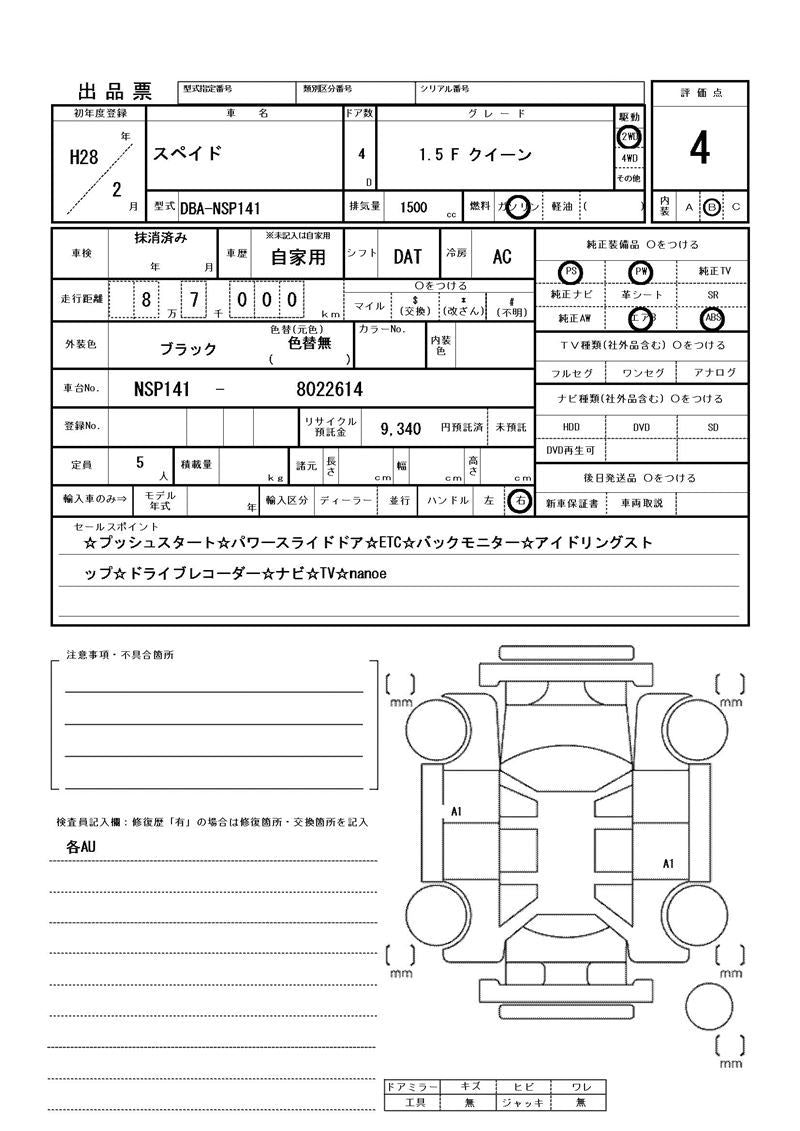 出品票 型式指定番号 類別区分番号 シリアル番号
評価点
初年度登録 車名 ドア数 グレード 駆動
H28 年 2 月 スペイド 4 D 1.5 F クイーン 2WD
4WD
その他
4
型式 DBA-NSP141 排気量 1500 cc 燃料 ガソリン 軽油 ( )
内装 A B C
車検 抹消済み 年 月 車歴 ※未記入は自家用 自家用 シフト DAT 冷房 AC
純正装備品 〇をつける
PS PW 純正TV
純正ナビ 革シート SR
純正AW エアB ABS
走行距離 8 万 7 千 0 0 0 km 〇をつける
マイル $ (交換) * (改ざん) # (不明)
外装色 ブラック 色替(元色) 色替無 ( ) カラーNo. 内装色
TV種類(社外品含む) 〇をつける
フルセグ ワンセグ アナログ
車台No. NSP141 - 8022614
ナビ種類(社外品含む) 〇をつける
HDD DVD SD
DVD再生可
登録No. リサイクル預託金 9,340 円預託済 未預託
定員 5 人 積載量 kg 諸元 長さ cm 幅 cm 高さ cm
後日発送品 〇をつける
新車保証書 車両取説
輸入車のみ⇒ モデル年式 年 輸入区分 ディーラー 並行 ハンドル 左 右
セールスポイント
☆プッシュスタート☆パワースライドドア☆ETC☆バックモニター☆アイドリングスト
ップ☆ドライブレコーダー☆ナビ☆TV☆nanoe
注意事項・不具合箇所
検査員記入欄:修復歴「有」の場合は修復箇所・交換箇所を記入
各AU
mm mm
A1
A1
mm mm
mm
ドアミラー キズ ヒビ ワレ
工具 無 ジャッキ 無